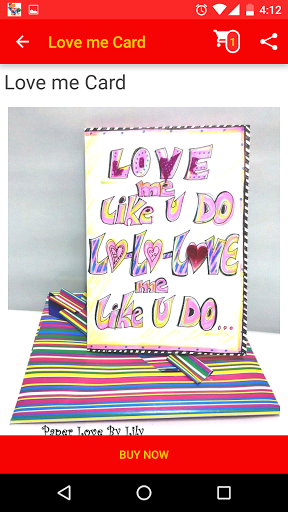 4:12
Love me Card
1
Love me Card
LOVE
me
Like U DO
LO-LO-LOVE
me
Like U DO...
Paper Love By Lily
BUY NOW